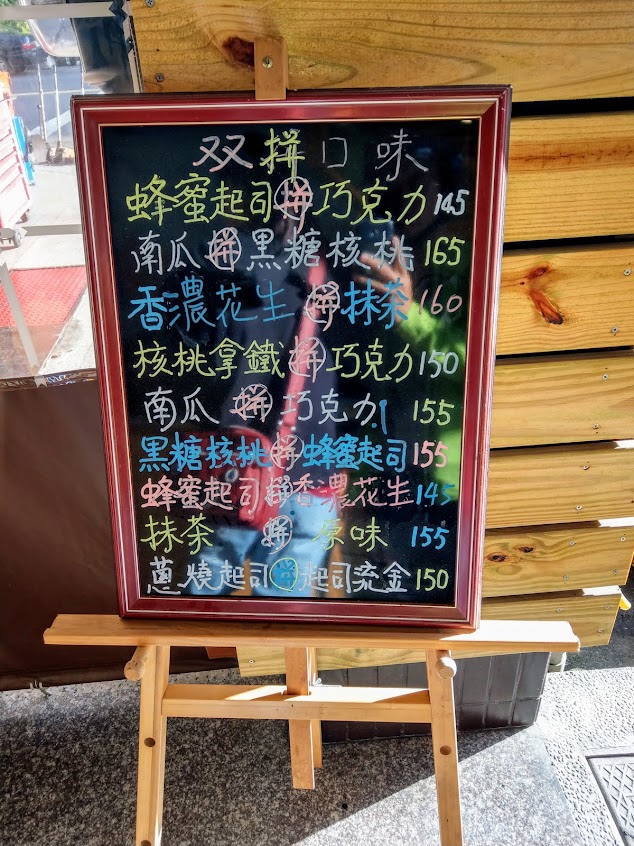 双拼口味
蜂蜜起司拼巧克力145
南瓜拼黑糖核桃165
香濃花生拼抹茶160
核桃拿鐵拼巧克力150
南瓜拼巧克力155
黑糖核桃拼蜂蜜起司155
蜂蜜起司拼香濃花生145
抹茶拼原味155
蔥燒起司拼起司流金150